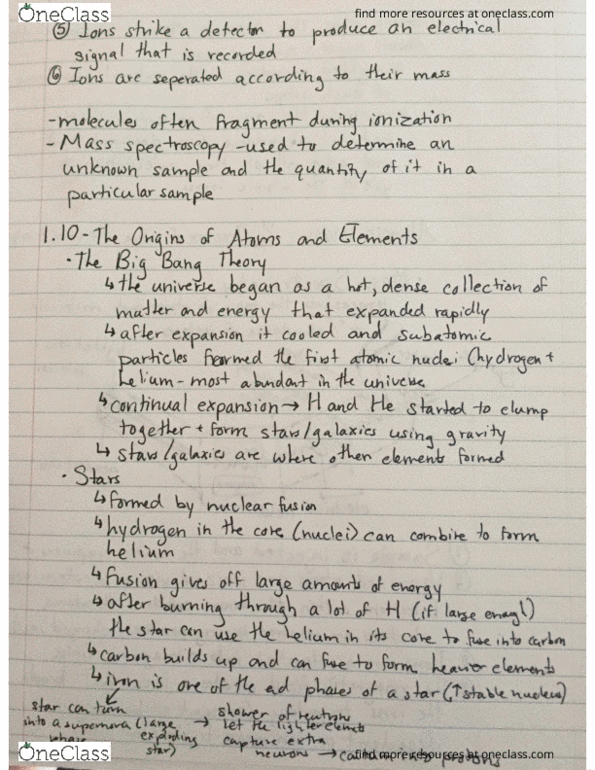 OneClass
find more resources at oneclass.com
⑤ Ions strike a detector to produce an electrical
signal that is recorded
⑥ Ions are seperated according to their mass
-molecules often fragment during ionization
- Mass spectroscopy -used to determine an
unknown sample and the quantity of it in a
particular sample
1.10-The Origins of Atoms and Elements
· The Big Bang Theory
↳ the universe began as a hot, dense collection of
matter and energy that expanded rapidly
↳ after expansion it cooled and subatomic
particles formed the first atomic nuclei (hydrogen +
helium - most abundant in the universe
↳ continual expansion → H and He started to clump
together + form stars/galaxies using gravity
↳ stars/galaxies are where other elements formed
· Stars
↳ formed by nuclear fusion
↳ hydrogen in the core (nuclei) can combine to form
helium
↳ fusion gives off large amounts of energy
↳ after burning through a lot of H (if large enough)
the star can use the helium in its core to fuse into carbon
↳ carbon builds up and can fuse to form heavier elements
↳ iron is one of the end phases of a star (↑ stable nucleus)
star can turn
into a supernova (large
exploding
star)
→ shower of neutrons
let the lighter elements
capture extra
neurons →
OneClass
find more resources at oneclass.com